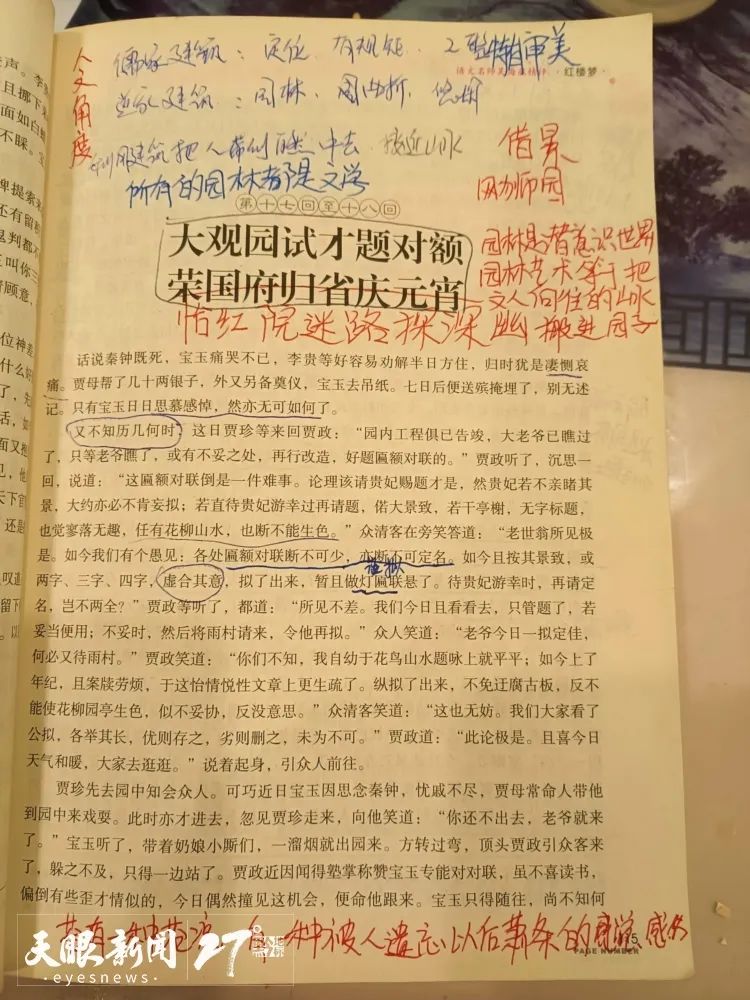 人文角度
儒家建筑：定位 有规矩
审美
语文名师
·红楼梦·
道家建筑：园林
建筑把人带到自然中去 接近山水
借景
所有的园林都是文学
网师园
第十七回至十八回
大观园试才题对额
荣国府归省庆元宵
园林是潜意识世界
园林艺术等于把
文人向往的山水
搬进园子
怡红院迷路探深幽
话说秦钟既死，宝玉痛哭不已，李贵等好容易劝解半日方住，归时犹是凄恻哀
痛。贾母帮了几十两银子，外又另备奠仪，宝玉去吊纸。七日后便送殡掩埋了，别无述
记。只有宝玉日日思慕感悼，然亦无可如何了。
又不知历几何时，这日贾珍等来回贾政：“园内工程俱已告竣，大老爷已瞧过
了，只等老爷瞧了，或有不妥之处，再行改造，好题匾额对联的。”贾政听了，沉思一
回，说道：“这匾额对联倒是一件难事。论理该请贵妃赐题才是，然贵妃若不亲睹其
景，大约亦必不肯妄拟；若直待贵妃游幸过再请题，偌大景致，若干亭榭，无字标题，
也觉寥落无趣，任有花柳山水，也断不能生色。”众清客在旁笑答道：“老世翁所见极
是。如今我们有个愚见：各处匾额对联断不可少，亦断不可定名。如今且按其景致，或
虚拟
两字、三字、四字，虚合其意，拟了出来，暂且做灯匾联悬了。待贵妃游幸时，再请定
名，岂不两全？”贾政等听了，都道：“所见不差。我们今日且看看去，只管题了，若
妥当便用；不妥时，然后将雨村请来，令他再拟。”众人笑道：“老爷今日一拟定佳，
何必又待雨村。”贾政笑道：“你们不知，我自幼于花鸟山水题咏上就平平；如今上了
年纪，且案牍劳烦，于这怡情悦性文章上更生疏了。纵拟了出来，不免迂腐古板，反不
能使花柳园亭生色，似不妥协，反没意思。”众清客笑道：“这也无妨。我们大家看了
公拟，各举其长，优则存之，劣则删之，未为不可。”贾政道：“此论极是。且喜今日
天气和暖，大家去逛逛。”说着起身，引众人前往。
贾珍先去园中知会众人。可巧近日宝玉因思念秦钟，忧戚不尽，贾母常命人带他
到园中来戏耍。此时亦才进去，忽见贾珍走来，向他笑道：“你还不出去，老爷就来
了。”宝玉听了，带着奶娘小厮们，一溜烟就出园来。方转过弯，顶头贾政引众客来
了，躲之不及，只得一边站了。贾政近因闻得塾掌称赞宝玉专能对对联，虽不喜读书，
偏倒有些歪才情似的，今日偶然撞见这机会，便命他跟来。宝玉只得随往，尚不知何
一种被人遗忘以后萧条的感觉
PAGE NUMBER
天眼新闻 27°
eyesnews